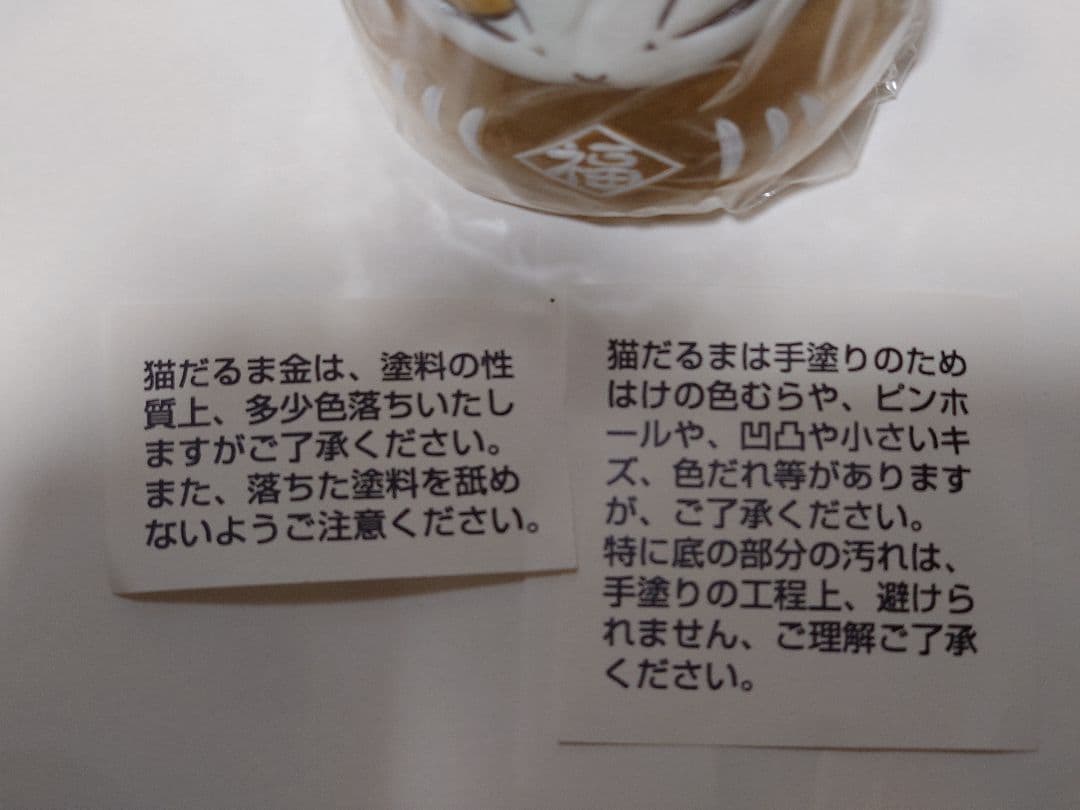 福
猫だるま金は、塗料の性
質上、多少色落ちいたし
ますがご了承ください。
また、落ちた塗料を舐め
ないようご注意ください。
猫だるまは手塗りのため
はけの色むらや、ピンホ
ールや、凹凸や小さいキ
ズ、色だれ等があります
が、ご了承ください。
特に底の部分の汚れは、
手塗りの工程上、避けら
れません、ご理解ご了承
ください。